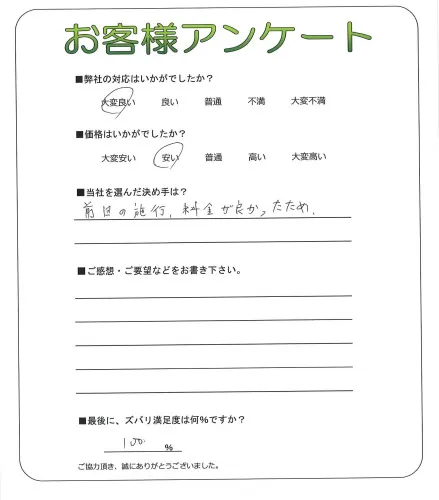 お客様アンケート
■弊社の対応はいかがでしたか？
大変良い 良い 普通 不満 大変不満
■価格はいかがでしたか？
大変安い 安い 普通 高い 大変高い
■当社を選んだ決め手は？
前回の施行、料金が良かったため。
■ご感想・ご要望などをお書き下さい。
■最後に、ズバリ満足度は何％ですか？
100 ％
ご協力頂き、誠にありがとうございました。